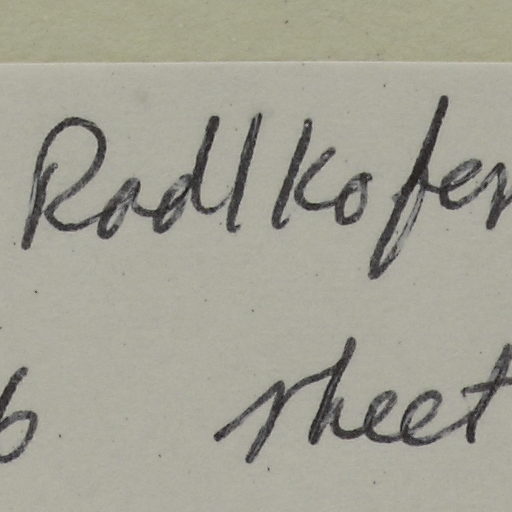 Radlkofer
6 sheet